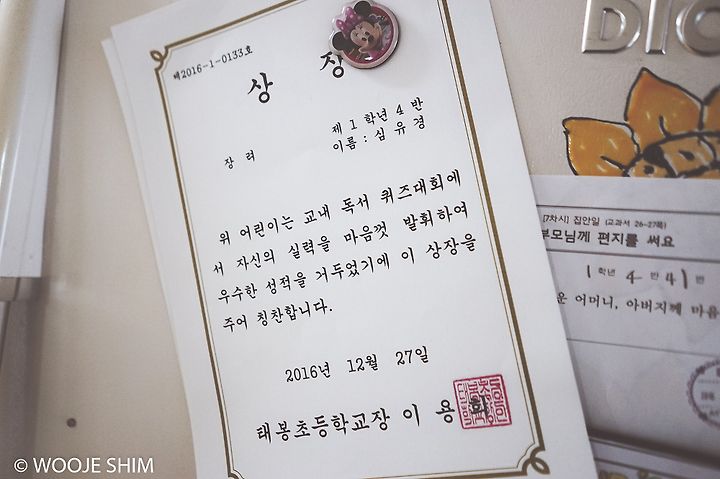 제2016-1-0133호
상 장
장 려
제 1 학년 4 반
이름 : 심 유 경
위 어린이는 교내 독서 퀴즈대회에
서 자신의 실력을 마음껏 발휘하여
우수한 성적을 거두었기에 이 상장을
주어 칭찬합니다.
2016년 12월 27일
태봉초등학교장 이 용 화
DIC
[7차시] 집안일 (교과서 26~27쪽)
부모님께 편지를 써요
1 학년 4 반 41 번
운 어머니, 아버지께 마음
© WOOJE SHIM